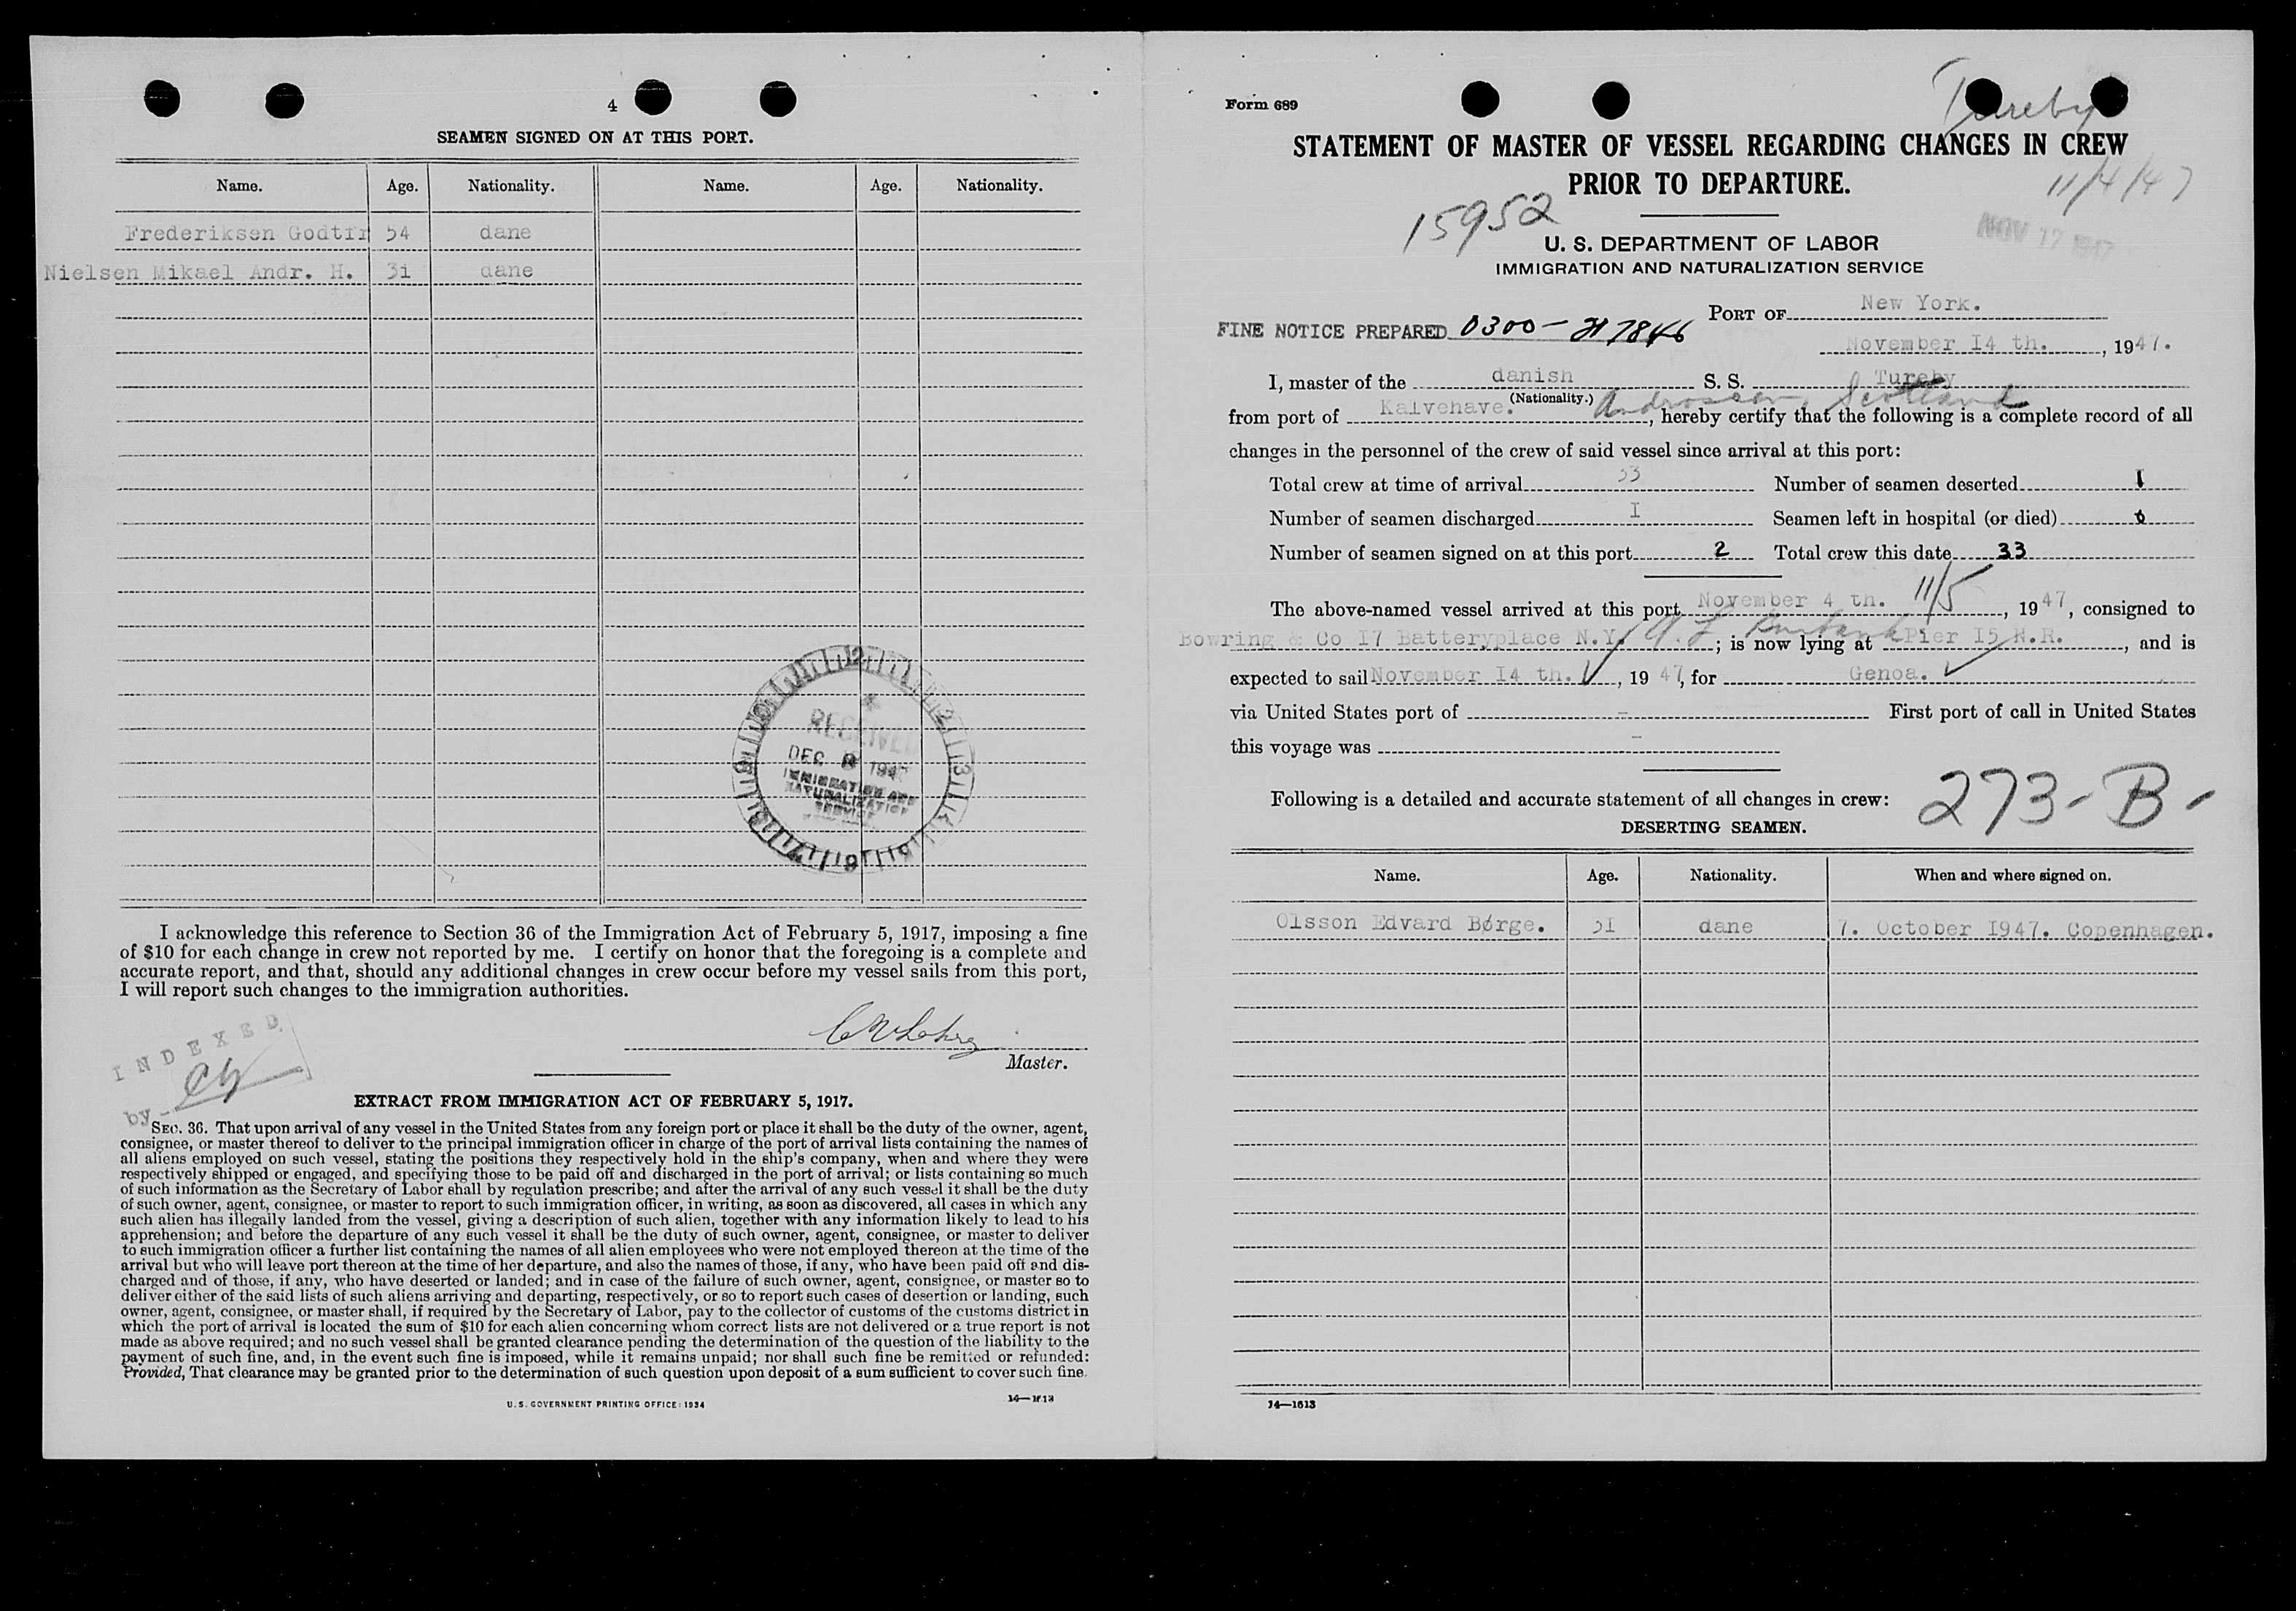 4
SEAMEN SIGNED ON AT THIS PORT.
Name. Age. Nationality. Name. Age. Nationality.
Frederiksen Godtfr 54 dane
Nielsen Mikael Andr. H. 3i dane
RECEIVED
DEC 1947
IMMIGRATION AND
NATURALIZATION
SERVICE
I acknowledge this reference to Section 36 of the Immigration Act of February 5, 1917, imposing a fine
of $10 for each change in crew not reported by me. I certify on honor that the foregoing is a complete and
accurate report, and that, should any additional changes in crew occur before my vessel sails from this port,
I will report such changes to the immigration authorities.
Master.
INDEXED
by
EXTRACT FROM IMMIGRATION ACT OF FEBRUARY 5, 1917.
SEC. 36. That upon arrival of any vessel in the United States from any foreign port or place it shall be the duty of the owner, agent,
consignee, or master thereof to deliver to the principal immigration officer in charge of the port of arrival lists containing the names of
all aliens employed on such vessel, stating the positions they respectively hold in the ship's company, when and where they were
respectively shipped or engaged, and specifying those to be paid off and discharged in the port of arrival; or lists containing so much
of such information as the Secretary of Labor shall by regulation prescribe; and after the arrival of any such vessel it shall be the duty
of such owner, agent, consignee, or master to report to such immigration officer, in writing, as soon as discovered, all cases in which any
such alien has illegally landed from the vessel, giving a description of such alien, together with any information likely to lead to his
apprehension; and before the departure of any such vessel it shall be the duty of such owner, agent, consignee, or master to deliver
to such immigration officer a further list containing the names of all alien employees who were not employed thereon at the time of the
arrival but who will leave port thereon at the time of her departure, and also the names of those, if any, who have been paid off and dis-
charged and of those, if any, who have deserted or landed; and in case of the failure of such owner, agent, consignee, or master so to
deliver either of the said lists of such aliens arriving and departing, respectively, or so to report such cases of desertion or landing, such
owner, agent, consignee, or master shall, if required by the Secretary of Labor, pay to the collector of customs of the customs district in
which the port of arrival is located the sum of $10 for each alien concerning whom correct lists are not delivered or a true report is not
made as above required; and no such vessel shall be granted clearance pending the determination of the question of the liability to the
payment of such fine, and, in the event such fine is imposed, while it remains unpaid; nor shall such fine be remitted or refunded:
Provided, That clearance may be granted prior to the determination of such question upon deposit of a sum sufficient to cover such fine.
U. S. GOVERNMENT PRINTING OFFICE: 1934
14—1613
Form 689
Tureby
STATEMENT OF MASTER OF VESSEL REGARDING CHANGES IN CREW
PRIOR TO DEPARTURE.
11/4/47
15952
NOV 17 1947
U. S. DEPARTMENT OF LABOR
IMMIGRATION AND NATURALIZATION SERVICE
PORT OF New York.
FINE NOTICE PREPARED 0300-
November I4 th., 1947.
I, master of the danish S. S. Tureby
(Nationality.)
from port of Kalvehave. Androssan, Scotland, hereby certify that the following is a complete record of all
changes in the personnel of the crew of said vessel since arrival at this port:
Total crew at time of arrival 33 Number of seamen deserted 1
Number of seamen discharged I Seamen left in hospital (or died) 0
Number of seamen signed on at this port 2 Total crew this date 33
The above-named vessel arrived at this port November 4 th. 11/5, 1947, consigned to
Bowring & Co I7 Batteryplace N.Y. ; is now lying at Pier I5 N.R., and is
expected to sail November I4 th., 1947, for Genoa.
via United States port of - First port of call in United States
this voyage was -
Following is a detailed and accurate statement of all changes in crew: 273-B-
DESERTING SEAMEN.
Name. Age. Nationality. When and where signed on.
Olsson Edvard Børge. 3I dane 7. October I947. Copenhagen.
14—1613